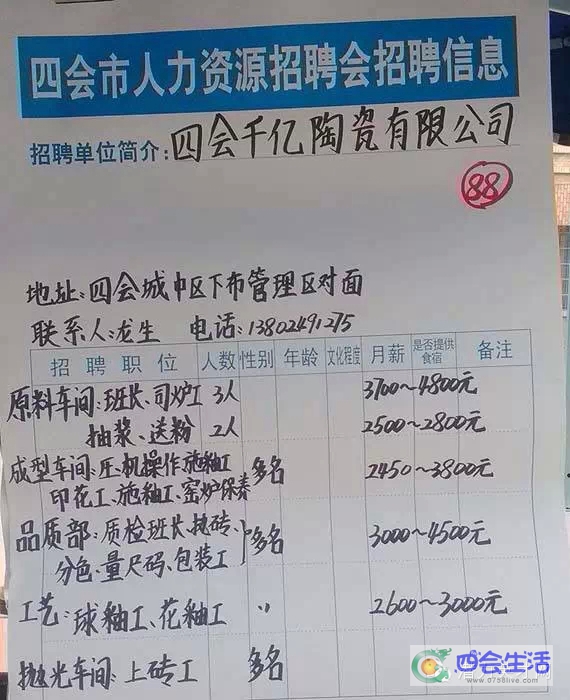 四会市人力资源招聘会招聘信息
招聘单位简介:四会千亿陶瓷有限公司
88
地址:四会城中区下布管理区对面
联系人:龙生 电话:13802491275
招聘职位 人数 性别 年龄 文化程度 月薪 是否提供食宿 备注
原料车间:班长、司炉工 3人 3700~4800元
抽浆、送粉 2人 2500~2800元
成型车间:压机操作、施釉工 多名 2450~3800元
印花工、施釉工、窑炉保养
品质部:质检班长、拽砖、 多名 3000~4500元
分色、量尺码、包装工
工艺:球釉工、花釉工 〃 2600~3000元
抛光车间:上砖工 多名
四会生活
www.0758live.com